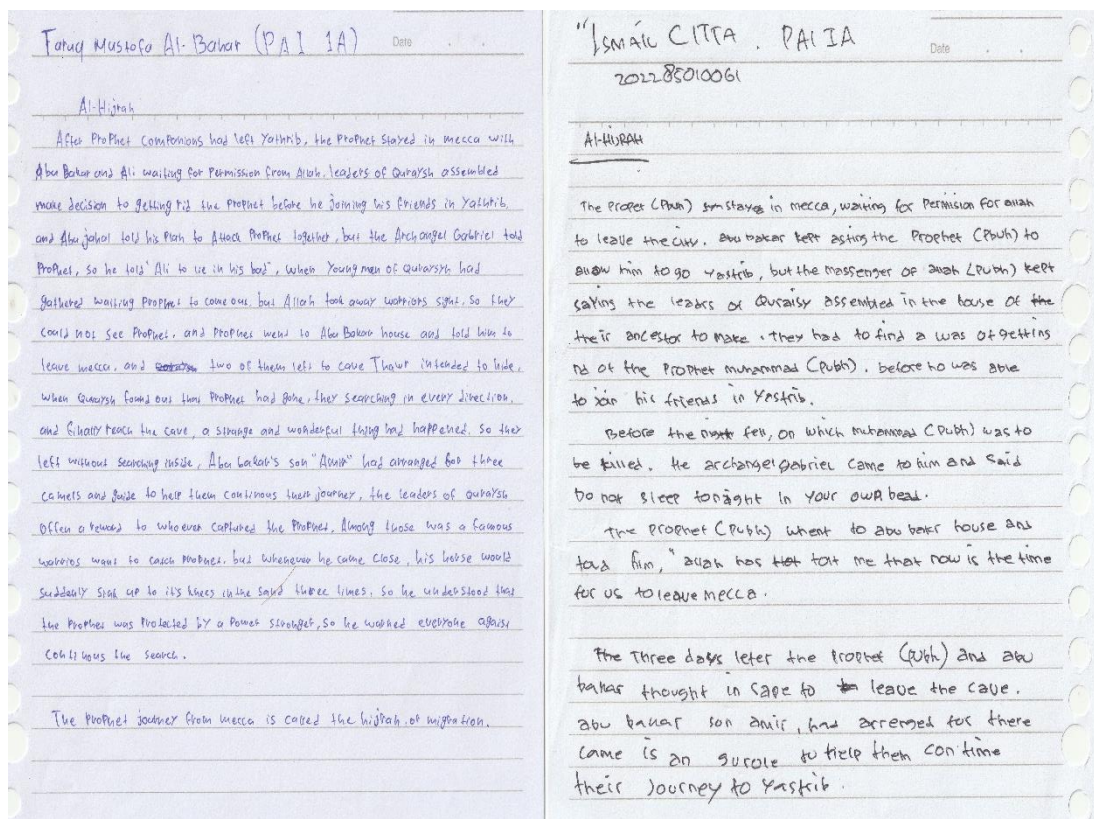 Faruq Mustofa Al-Bahar (PAI 1A)
Date
Al-Hijrah
After Prophet companions had left Yathrib, the Prophet stayed in mecca with
Abu Bakar and Ali waiting for Permission from Allah. leaders of Quraysh assembled
make decision to getting rid the Prophet before he joining his friends in Yathrib.
and Abu jahal told his Plan to Attack Prophet together, but the Archangel Gabriel told
Prophet, so he told "Ali to lie in his bed", when Young men of Quraysyh had
gathered waiting Prophet to come out. but Allah took away warriors sight. So they
could not see Prophet. and Prophet went to Abu Bakar house and told him to
leave mecca. and two of them left to cave Thawr intended to hide,
when Quraysh found out that Prophet had gone, they searching in every direction.
and finally reach the cave, a strange and wonderful thing had happened. So they
left without searching inside, Abu bakar's son "Amir" had arranged for three
camels and guide to help them continous their journey, the leaders of quraysh
offen a reward to whoever captured the Prophet. Among those was a famous
warrios want to catch Prophet. but whenever he came close, his horse would
suddenly sink up to it's knees in the sand three times. So he understood that
the Prophet was Protected by a Power stronger, so he warned everyone agains
continous the search.
The Prophet journey from mecca is called the hijrah. of migration.
"Ismail CITTA. PAI IA
Date
202285010061
Al-HIJRAH
The Proper (Pbuh) stayes in mecca, waiting for Permision for allah
to leave the city. abu bakar kept asting the Prophet (Pbuh) to
allow him to go Yastrib, but the massenger of allah (Pubh) kept
saying the leadrs of Quraisy assembled in the house of the
their ancestor to make. they had to find a was of getting
rid of the Prophet muhammad (Pubh). before ho was able
to join his friends in Yastrib.
Before the fell, on which muhammad (Pubh) was to
be killed. He archangel Gabriel came to him and Said
Do not sleep tonight in your own bead.
The Prophet (Pubh) whent to abu bakr house and
told him, "allah has tolt me that now is the time
for us to leave mecca.
The Three days leter the Prophet (Pubh) and abu
bakar thought in Sape to leave the cave.
abu bakar son amir, had arrenged for there
came is an to help them con time
their Journey to Yastrib.